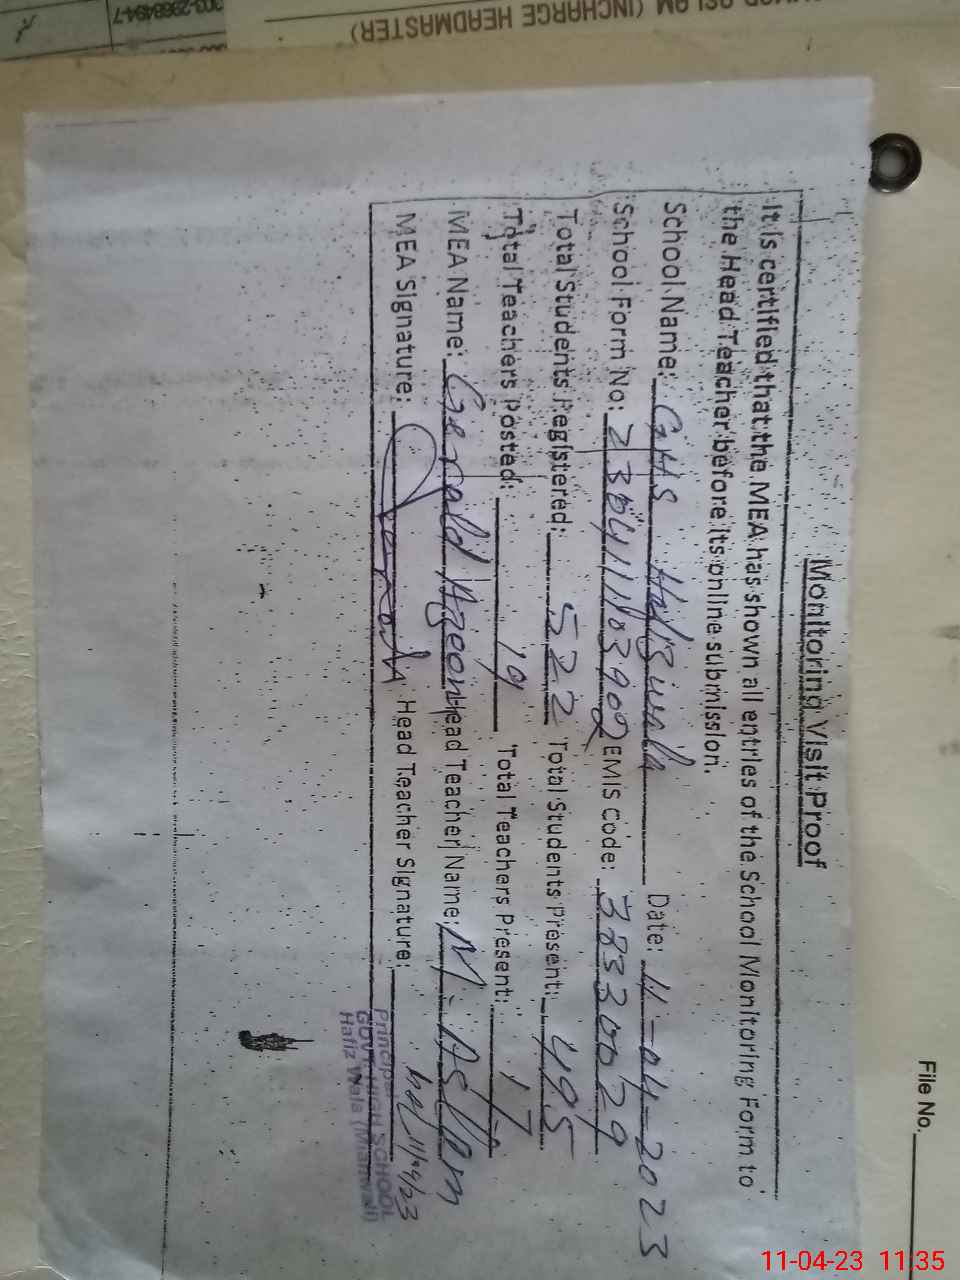 Monitoring Visit Proof
It is certified that the MEA has shown all entries of the School Monitoring Form to
the Head Teacher before its online submission.
School Name: GHS Hafizwala Date: 11-04-2023
School Form No: EMIS Code: 38330029
Total Students Registered: 522 Total Students Present: 495
Total Teachers Posted: 19 Total Teachers Present: 17
MEA Name: Gerald Azeon Head Teacher Name: M. Aslam
MEA Signature: Head Teacher Signature: 11/04/23
Principal
GOVT. HIGH SCHOOL
Hafiz Wala (Mianwali)
File No.
(INCHARGE HEADMASTER)
11-04-23 11:35